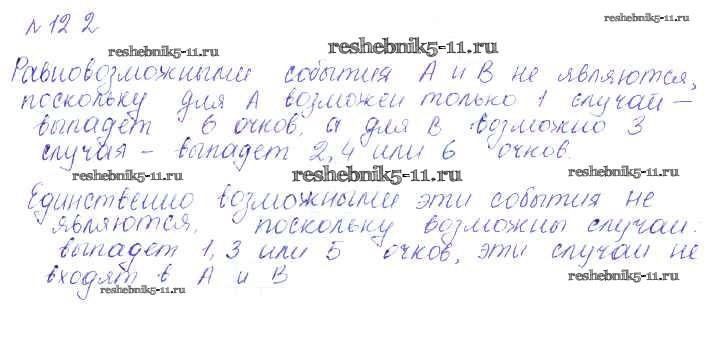 № 122
reshebnik5-11.ru
reshebnik5-11.ru reshebnik5-11.ru
Равновозможными события А и В не являются,
поскольку для А возможен только 1 случай –
выпадет 6 очков, а для В возможно 3
случая – выпадет 2, 4 или 6 очков.
reshebnik5-11.ru reshebnik5-11.ru reshebnik5-11.ru
Единственно возможными эти события не
являются, поскольку возможны случаи:
выпадет 1, 3 или 5 очков, эти случаи не
входят в А и В
reshebnik5-11.ru reshebnik5-11.ru